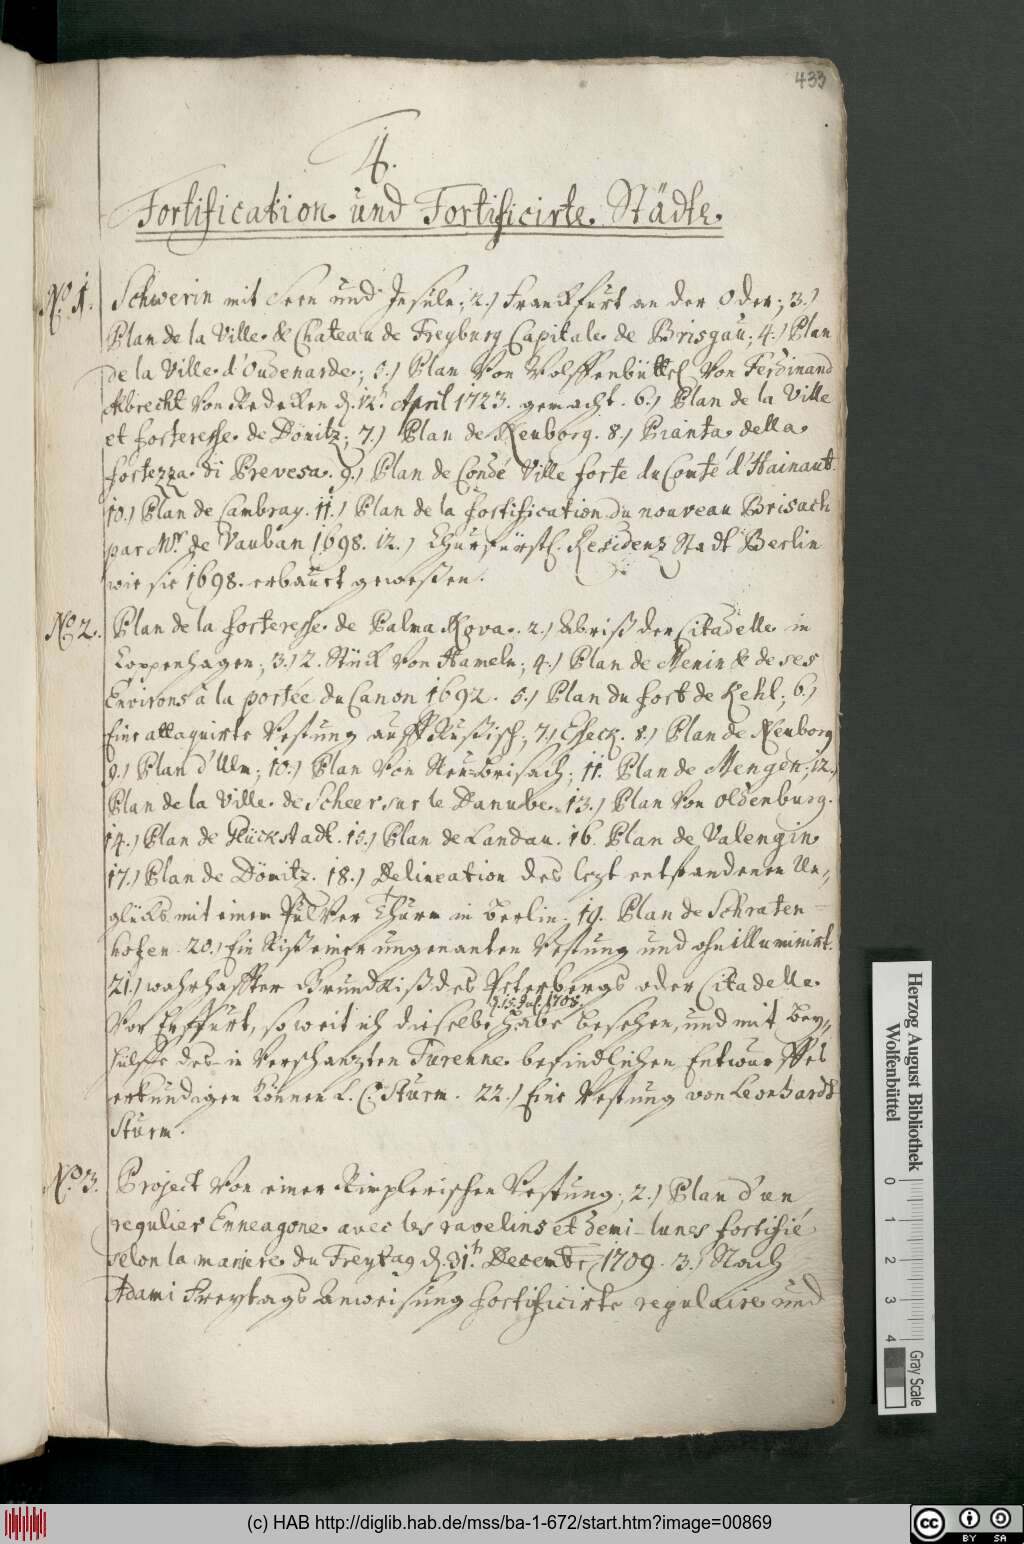 433
4.
Fortification und Fortificirte Städte.
No. 1. Schwerin mit Seen und Jnsuln; 2.) Franckfurt an der Oder; 3.)
Plan de la Ville & Chateau de Freyburg Capitale de Brisgau; 4.) Plan
de la Ville d'Oudenarde; 5.) Plan Von Wolffenbüttel Von Ferdinand
Albrecht Von Redeken d. 12t. April 1723. gemacht. 6.) Plan de la Ville
et forteresse de Dömitz; 7.) Plan de Neuborg. 8.) Pianta della
fortezza di Prevesa. 9.) Plan de Condé Ville forte du Comté d'Hainaut
10.) Plan de Cambray. 11.) Plan de la fortification du nouveau Brisach
par Mr. de Vauban 1698. 12.) Churfürstl. Residenz Stadt Berlin
wie sie 1698. erbauet geweßen.
No 2. Plan de la forteresse de Palma Nova. 2.) Abriß der Citadelle in
Coppenhagen; 3.) 2. Stück Von Hameln; 4.) Plan de Menin & de ses
Environs à la portée du Canon 1692. 5.) Plan du fort de Kehl; 6.)
Eine attaquirte Vestung auff Rußisch; 7.) Esseck. 8.) Plan de Neuborg
9.) Plan d'Ulm; 10.) Plan Von Neu-Brisach; 11. Plan de Mengen; 12.)
Plan de la Ville de Scheer sur le Danube. 13.) Plan Von Oldenburg.
14.) Plan de Glückstadt. 15.) Plan de Landau. 16. Plan de Valengin
17.) Plan de Dömitz. 18.) Delineation des lezt entstandenen Un=
glücks mit einem Pulver Thurm in Berlin. 19. Plan de Schraten-
hofen. 20.) Ein Riß einer ungenanten Vestung und ohn illuminirt.
21.) wahrhaffter Grundriß des Petersbergs oder Citadelle
Vor Erffurt, so weit ich dieselbe d. 15. Jul. 1708. habe besehen, und mit Bey=
hülffe des in Verschanzten Turenne befindlichen Entwurffes
erkundigen können L. C. Sturm. 22.) Eine Vestung von Leonhardt
Sturm.
No. 3. Project Von einer Rimplerischen Vestung; 2.) Plan d'un
regulier Enneagone avec les ravelins et demi-lunes fortifié
selon la maniere du Freytag d. 31t. Decembr 1709. 3.) Nach
Adami Freytags Anweisung fortificirte regulaire und
Herzog August Bibliothek
Wolfenbüttel
0 1 2 3 4
Gray Scale
(c) HAB http://diglib.hab.de/mss/ba-1-672/start.htm?image=00869
cc BY SA